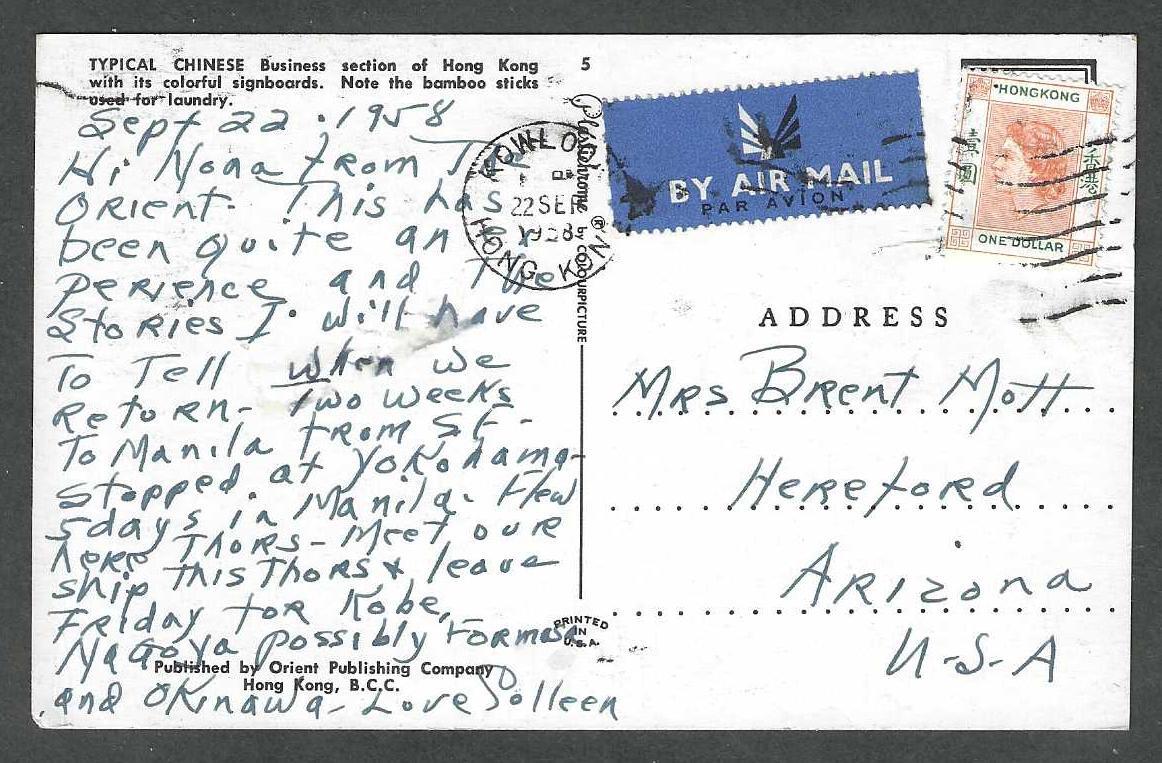 TYPICAL CHINESE Business section of Hong Kong
with its colorful signboards. Note the bamboo sticks
used for laundry.
5
Sept 22 . 1958
Hi Nona from The
Orient. This has
been quite an ex
perience and The
Stories I will have
To Tell when we
return- two weeks
To Manila from SF-
Stopped at Yokohama-
5days in Manila- Flew
here Thurs- Meet oure
ship This Thurs & leave
Friday for Kobe,
Nagoya possibly Formosa
and Okinawa- Love
Published by Orient Publishing Company
Hong Kong, B.C.C.
Plastichrome ® by COLOURPICTURE
PRINTED
IN
U.S.A.
KOWLOON
22 SEP
1958
HONG KONG
BY AIR MAIL
PAR AVION
HONGKONG
壹圓
香港
ONE DOLLAR
ADDRESS
Mrs Brent Mott
Hereford
Arizona
U-S-A